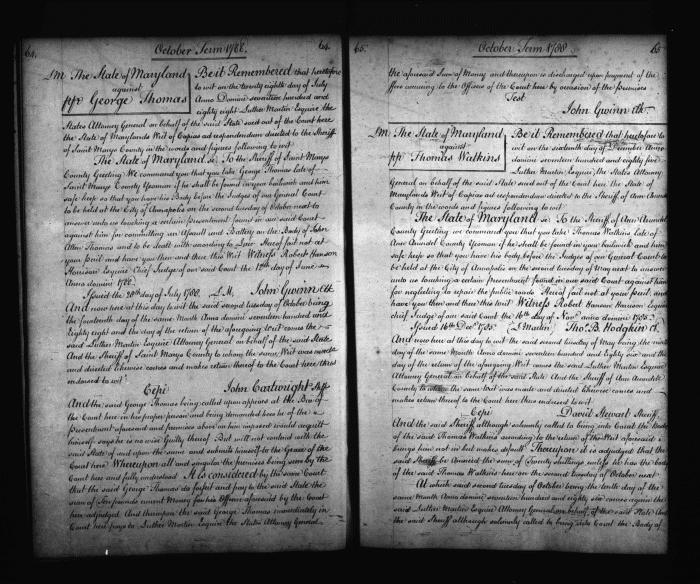 64.
October Term 1788.
64.
LM The State of Maryland
against
pp George Thomas
Be it Remembered that heretofore
to wit on the twenty eighth day of July
Anno Domini seventeen hundred and
eighty eight Luther Martin Esquire the
States Attorney General on behalf of the said State sued out of the Court here
the State of Marylands Writ of Capias ad respondendum directed to the Sheriff
of Saint Marys County in the words and figures following to wit
The State of Maryland sc. To the Sheriff of Saint Marys
County Greeting We command you that you take George Thomas late of
Saint Marys County Yeoman if he shall be found in your bailiwick and him
safe keep so that you have his Body before the Judges of our General Court
to be held at the City of Annapolis on the second tuesday of October next to
answer unto us touching a certain presentment found in our said Court
against him for committing an Assault and Battery on the Body of John
Allen Thomas and to be dealt with according to Law Hereof fail not at
your peril and have you then and there this Writ Witness Robert Hanson
Harrison Esquire Chief Judge of our said Court the 12th day of June
Anno domini 1788.
Issued the 28th day of July 1788. L.M. John Gwinn Clk
And now here at this day to wit the said second tuesday of October being
the fourteenth day of the same Month Anno domini seventeen hundred and
Eighty eight and the day of the return of the aforegoing writ comes the
said Luther Martin Esquire Attorney General on behalf of the said State
And the Sheriff of Saint Marys County to whom the same Writ was made
and directed likewise comes and makes return thereof to the Court here thus
endorsed to wit
Cepi John Cartwright Shff
And the said George Thomas being called upon appears at the Bar of
the Court here in his proper person and being demanded how he of the
Presentment aforesaid and premises above on him imposed would acquit
himself says he is no wise Guilty thereof But will not contend with the
said State of and upon the same and submits himself to the Grace of the
Court here Whereupon all and singular the premises being seen by the
Court here and fully understood It is considered by the same Court
that the said George Thomas do forfeit and pay to the said State the
sum of five pounds current Money for his Offence aforesaid by the Court
here adjudged And thereupon the said George Thomas immediately in
Court here pays to Luther Martin Esquire the States Attorney General
65.
October Term 1788
65
the aforesaid Sum of Money and thereupon is discharged upon payment of the
fees accruing to the Officers of the Court here by occasion of the premises
Test
John Gwinn Clk.
LM The State of Maryland
against
pp Thomas Watkins
Be it Remembered that heretofore to
wit on the sixteenth day of December Anno
domini seventeen hundred and eighty five
Luther Martin Esquire the States Attorney
General on behalf of the said State sued out of the Court here the State of
Marylands Writ of Capias ad respondendum directed to the Sheriff of Ann Arundel
County in the words and figures following to wit
The State of Maryland sc. To the Sheriff of Ann Arundel
County Greeting we command you that you take Thomas Watkins late of
Ann Arundel County Yeoman if he shall be found in your bailiwick and him
safe keep so that you have his body before the Judges of our General Court to
be held at the City of Annapolis on the second tuesday of May next to answer
unto us touching a certain presentment found in our said Court against him
for neglecting to repair the public roads Hereof fail not at your peril and
have you then and there this Writ Witness Robert Hanson Harrison Esquire
chief Judge of our said Court the 16th day of Novr anno domini 1785.
Issued 16th Decr 1785. (L Martin) Thos. B. Hodgkin Ck.
And now here at this day to wit the said second tuesday of May being the ninth
day of the same Month Anno domini seventeen hundred and eighty six and the
day of the return of the aforegoing Writ comes the said Luther Martin Esquire
Attorney General on behalf of the said State And the Sheriff of Ann Arundel
County to whom the same Writ was made and directed likewise comes and
makes return thereof to the Court here thus endorsed to wit
Cepi David Stewart Sheriff.
And the said Sheriff although solemnly called to bring into Court the Body
of the said Thomas Watkins according to the return of the Writ aforesaid
brings him not in but makes default Thereupon it is adjudged that the
said Sheriff be Amerced the sum of shillings unless he has the body
of the said Thomas Watkins here on the second tuesday of October next
At which said second tuesday of October being the tenth day of the
same Month Anno domini seventeen hundred and eighty six comes again the
said Luther Martin Esquire Attorney General on behalf of the said State And
the said Sheriff although solemnly called to bring into Court the Body of